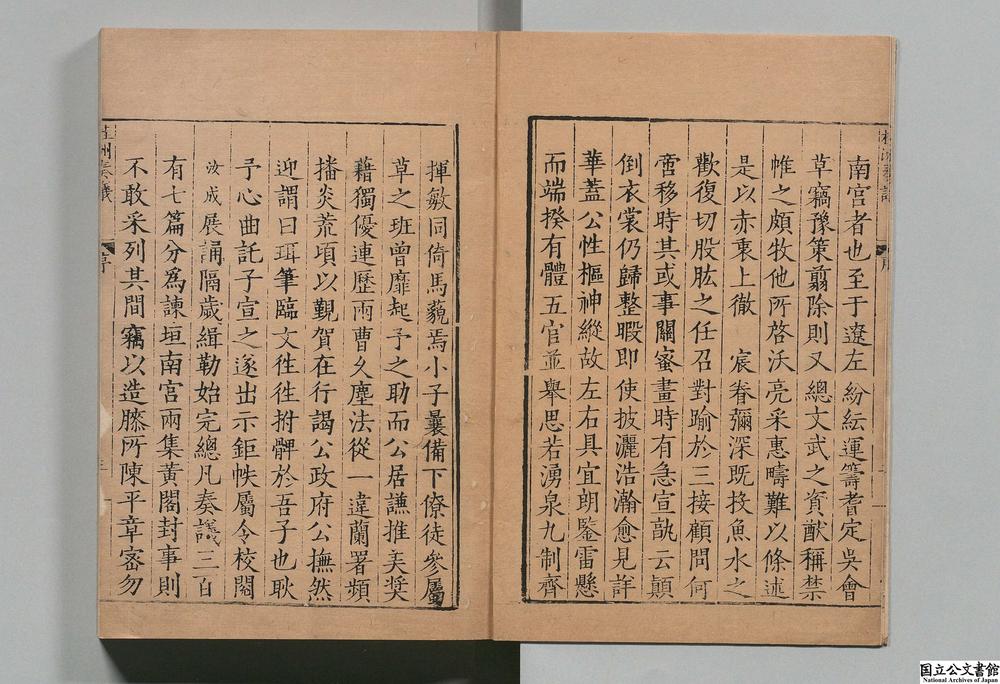 南宮者也至于遼左紛紜運籌耆定吳會
草竊豫策翦除則又總文武之資猷稱禁
帷之頗牧他所啓沃亮采惠疇難以條述
是以赤衷上徹 宸眷彌深既投魚水之
歡復切股肱之任召對踰於三接顧問何
啻移時其或事關蜜畫時有急宣孰云顛
倒衣裳仍歸整暇即使披灑浩瀚愈見詳
華蓋公性樞神縱故左右具宜朗鑒雷懸
而端揆有體五官並舉思若湧泉九制齊
揮敏同倚馬藐焉小子曩備下僚徒參屬
草之班曾靡起予之助而公居謙推美奬
藉獨優連歷兩曹久塵法從一違蘭署頻
播炎荒頃以覲賀在行謁公政府公撫然
迎謂曰珥筆臨文徃徃拊髀於吾子也耿
予心曲託子宣之遂出示鉅帙屬令校閱
汝成展誦隔歲緝勒始完總凡奏議三百
有七篇分爲諫垣南宮兩集黃閣封事則
不敢采列其間竊以造膝所陳平章密勿
桂洲奏議
序
国立公文書館
National Archives of Japan